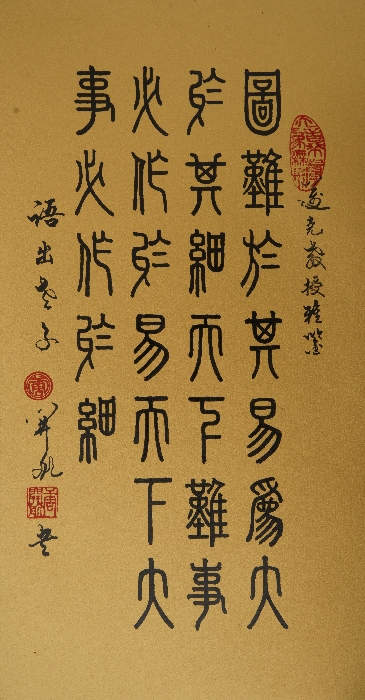 克教授雅鑒
圖難於其易爲大
於其細天下難事
必作於易天下大
事必作於細
語出老子
書